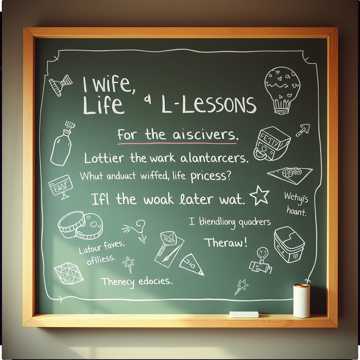 I wife,
Life & L-Lessons
For the aiscivers.
Lottier the wark alantarcers.
What anduact wiffed, life pricess?
Ifl the woak later wat.
Wctyl's
haant.
I blendliony quodrers
Theraw!
Latour foves,
offliess.
Thenecy edocies.